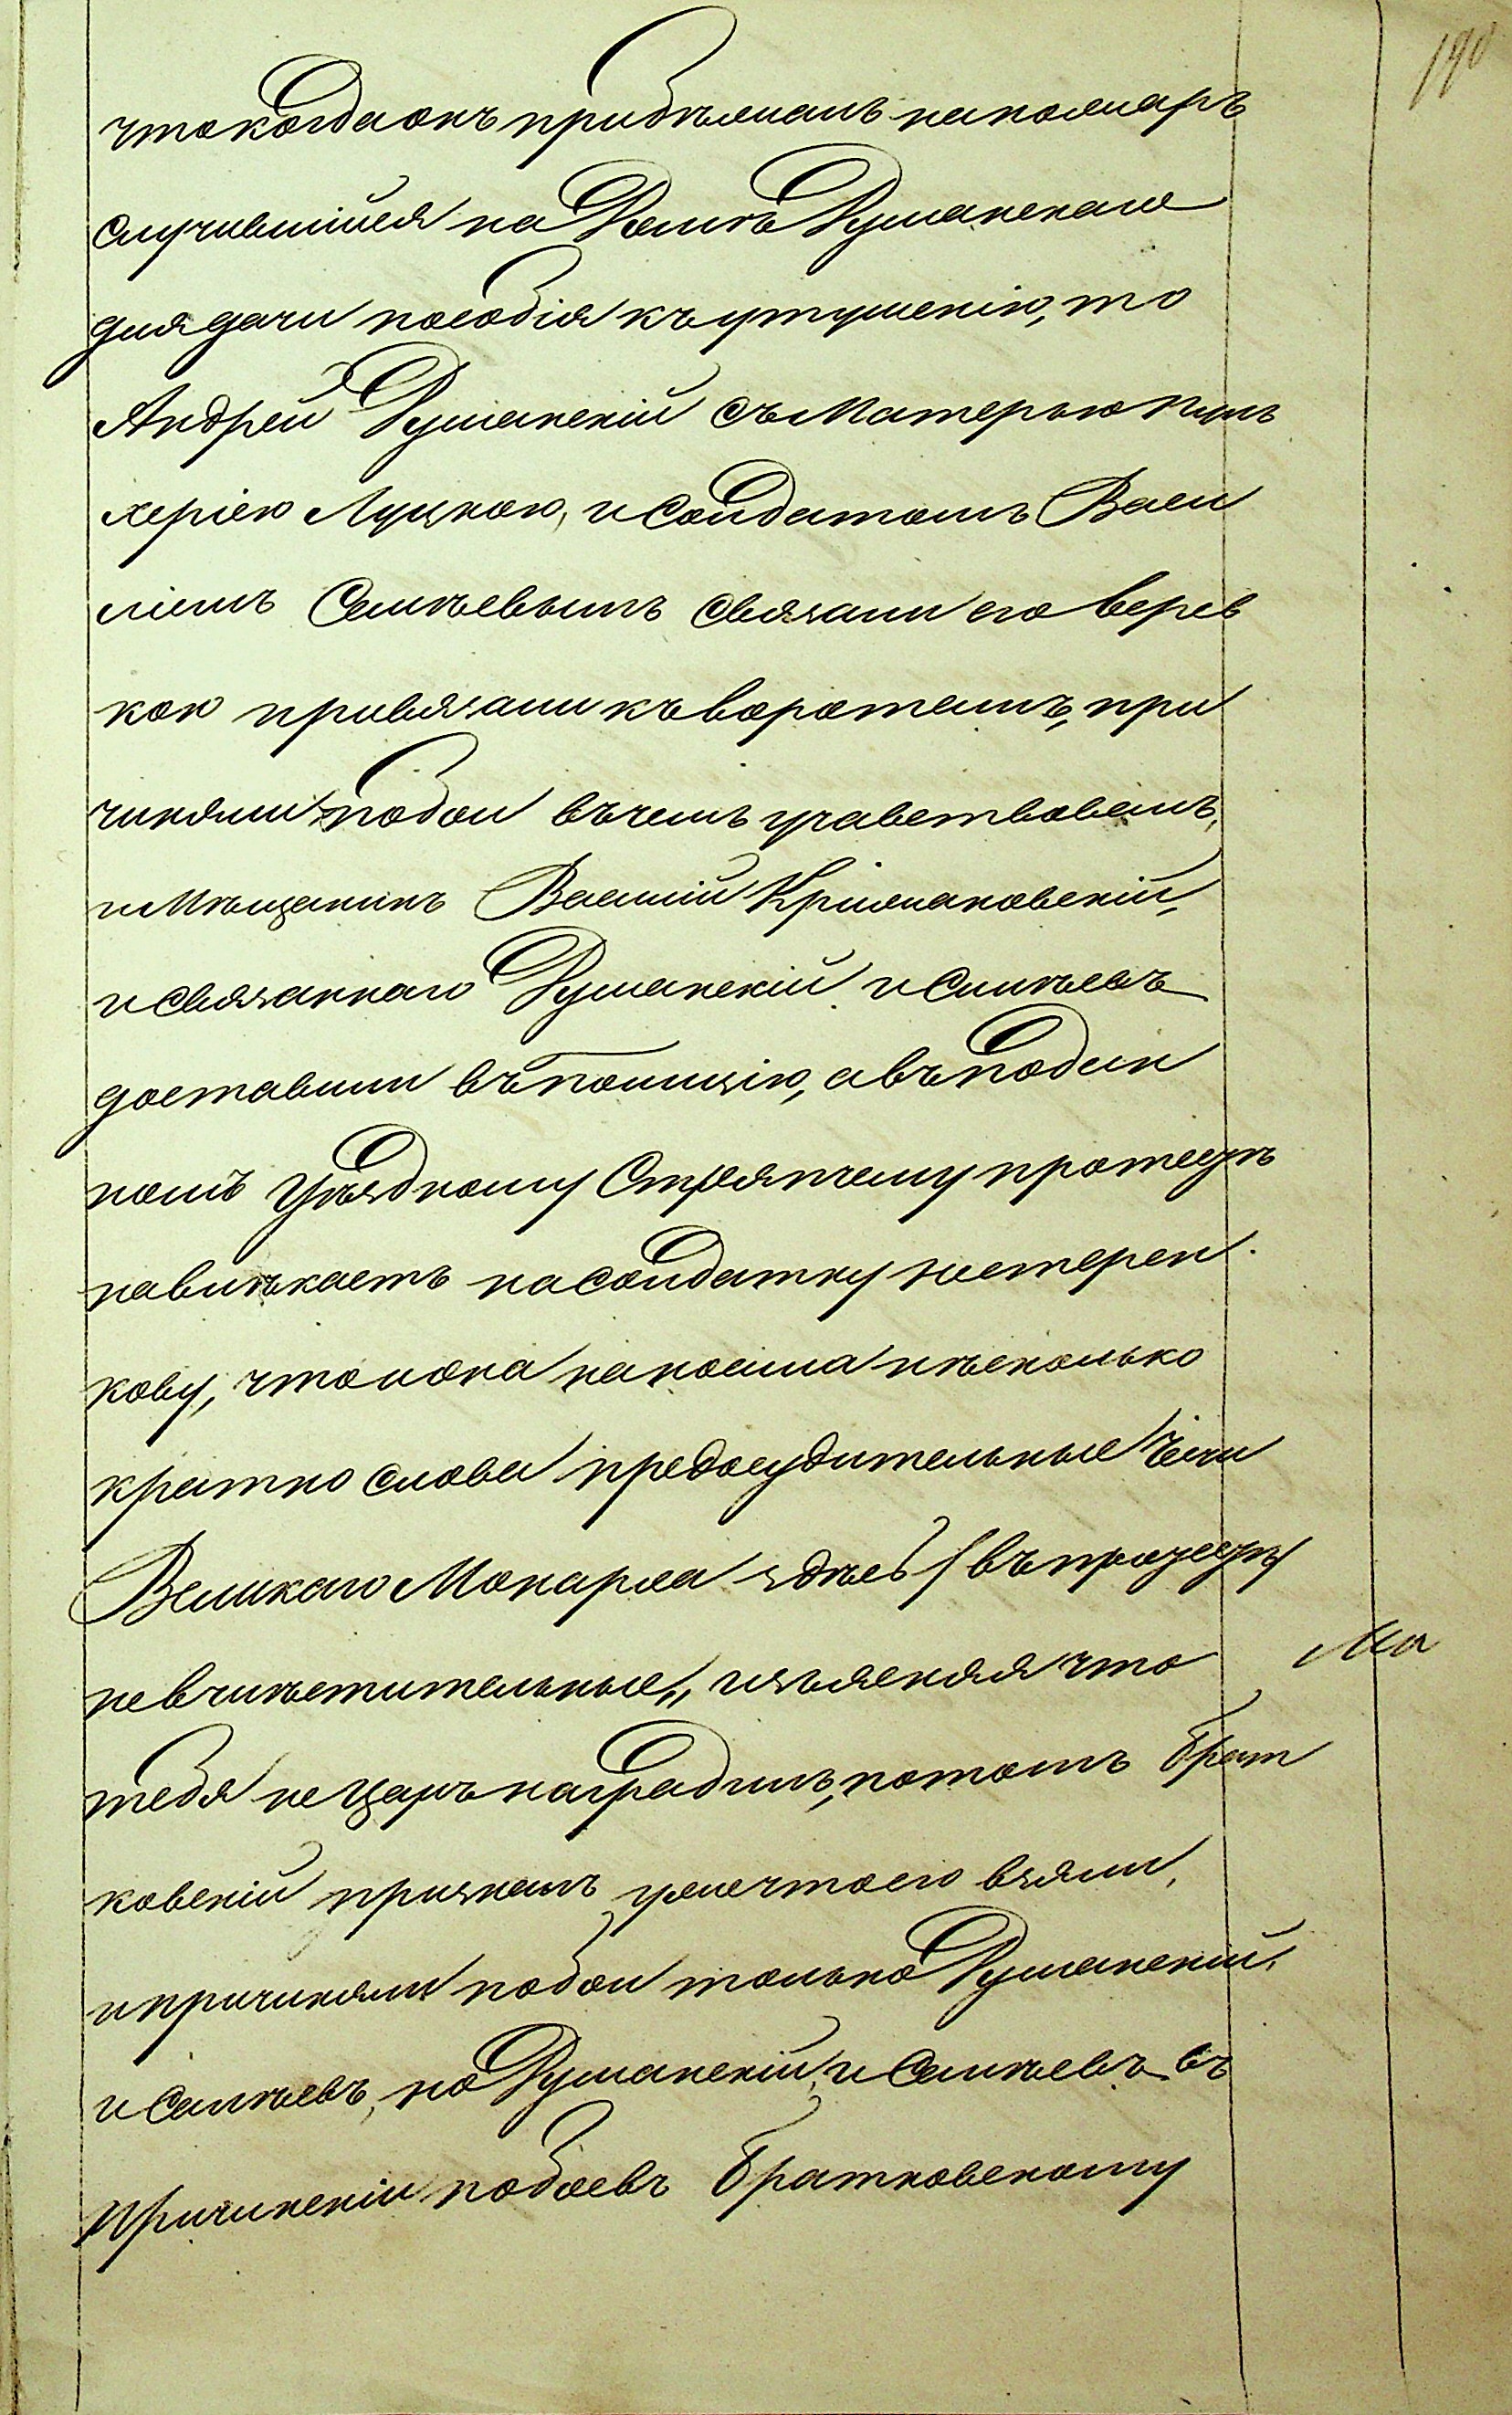 190
что когда онъ прибѣжалъ на пожаръ
случившійся на Домѣ Думанскаго
для дачи пособія къ утушенію, то
Андрей Думанскій съ Матерью Пуль
херіею Луцкою, и Солдатомъ Васи
ліемъ Семѣевымъ связали его верев
кою привязали къ воротамъ, при
чиняли побои въ чемъ учавствовалъ,
и Мѣщанинъ Василій Кршижановскій,
и связаннаго Думанскій и Симѣевъ
доставили въ полицію, а въ подан
номъ Уѣздному Стряпчему протестѣ
навлѣкаетъ на Солдатку Нестерен
кову, что и она наносила нѣсколько
кратно слова предосудительные Чести
Великаго Монарха здѣсь въ процессѣ
не вчинѣстительные, изъясняя что
Ма
тебя не Царь наградилъ, потомъ Брат
ковскій призналъ уже что его взяли,
и причиняли побои только Думанскій,
и Семѣевъ, но Думанскій, и Семѣевъ въ
Причиненіи побоевъ Братковскому